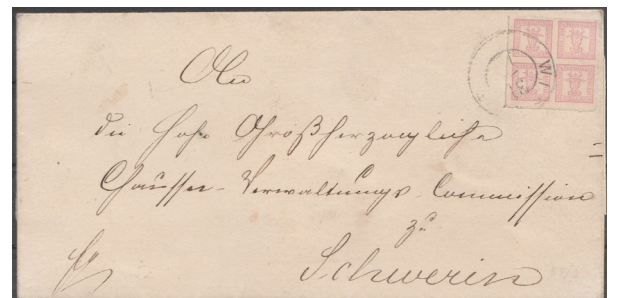 An
die Hohe Großherzogliche
Chaussee-Verwaltungs-Commission
zu
Schwerin
WI